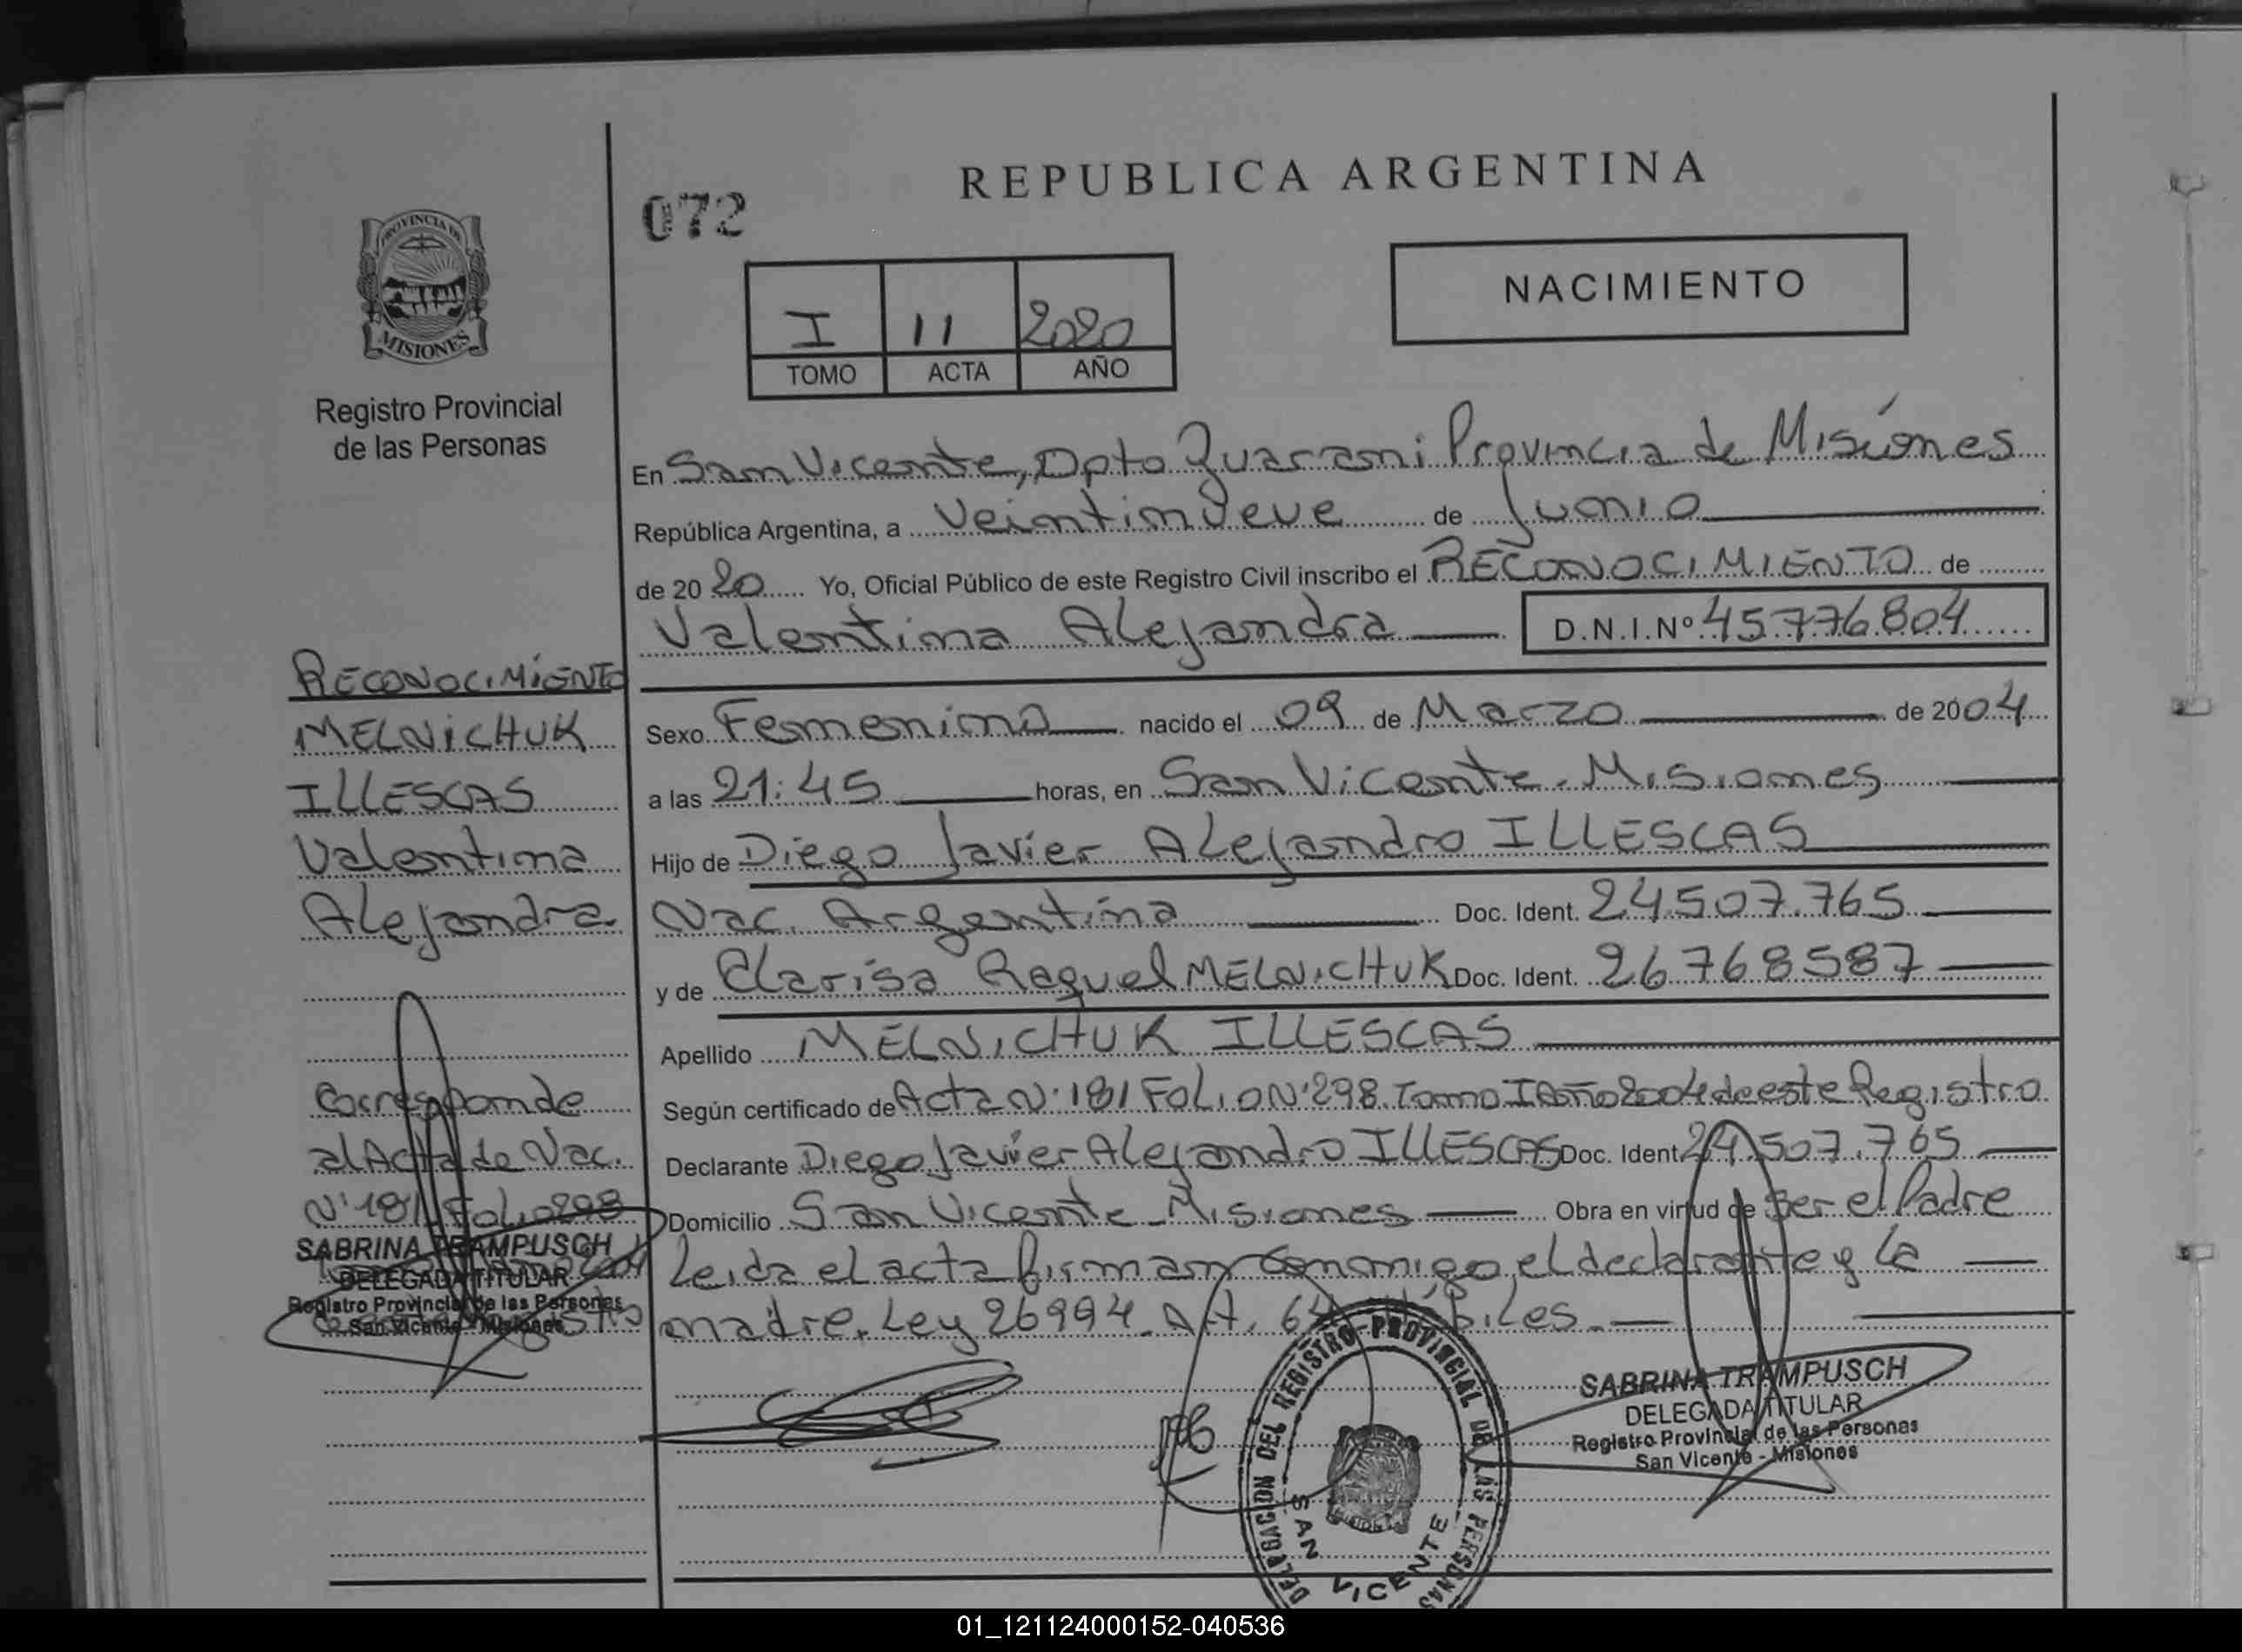 REPUBLICA ARGENTINA
072
NACIMIENTO
I 11 2020
TOMO ACTA AÑO
PROVINCIA DE
MISIONES
Registro Provincial
de las Personas
En San Vicente, Dpto Guarani Provincia de Misiones
República Argentina, a Veintinueve de Junio
de 2020 Yo, Oficial Público de este Registro Civil inscribo el RECONOCIMIENTO de
Valentina Alejandra D.N.I.Nº 45776804
Sexo Femenino nacido el 09 de Marzo de 2004
a las 21:45 horas, en San Vicente - Misiones
Hijo de Diego Javier Alejandro ILLESCAS
Nac. Argentina Doc. Ident. 24.507.765
y de Clarisa Raquel MELNICHUK Doc. Ident. 26768587
Apellido MELNICHUK ILLESCAS
Según certificado de Acta N° 181 FOLIO N° 298. Tomo I Año 2004 de este Registro
Declarante Diego Javier Alejandro ILLESCAS Doc. Ident. 24.507.765
Domicilio San Vicente - Misiones Obra en virtud de Ser el Padre
Leida el acta firman conmigo el declarante y la
madre. Ley 26994. Art. 64
RECONOCIMIENTO
MELNICHUK
ILLESCAS
Valentina
Alejandra
Corresponde
al Acta de Nac.
N° 181 Folio 298
SABRINA TRAMPUSCH
DELEGADA TITULAR
Registro Provincial de las Personas
San Vicente - Misiones
DELEGACION DEL REGISTRO PROVINCIAL DE LAS PERSONAS
SAN VICENTE
SABRINA TRAMPUSCH
DELEGADA TITULAR
Registro Provincial de las Personas
San Vicente - Misiones
01_121124000152-040536